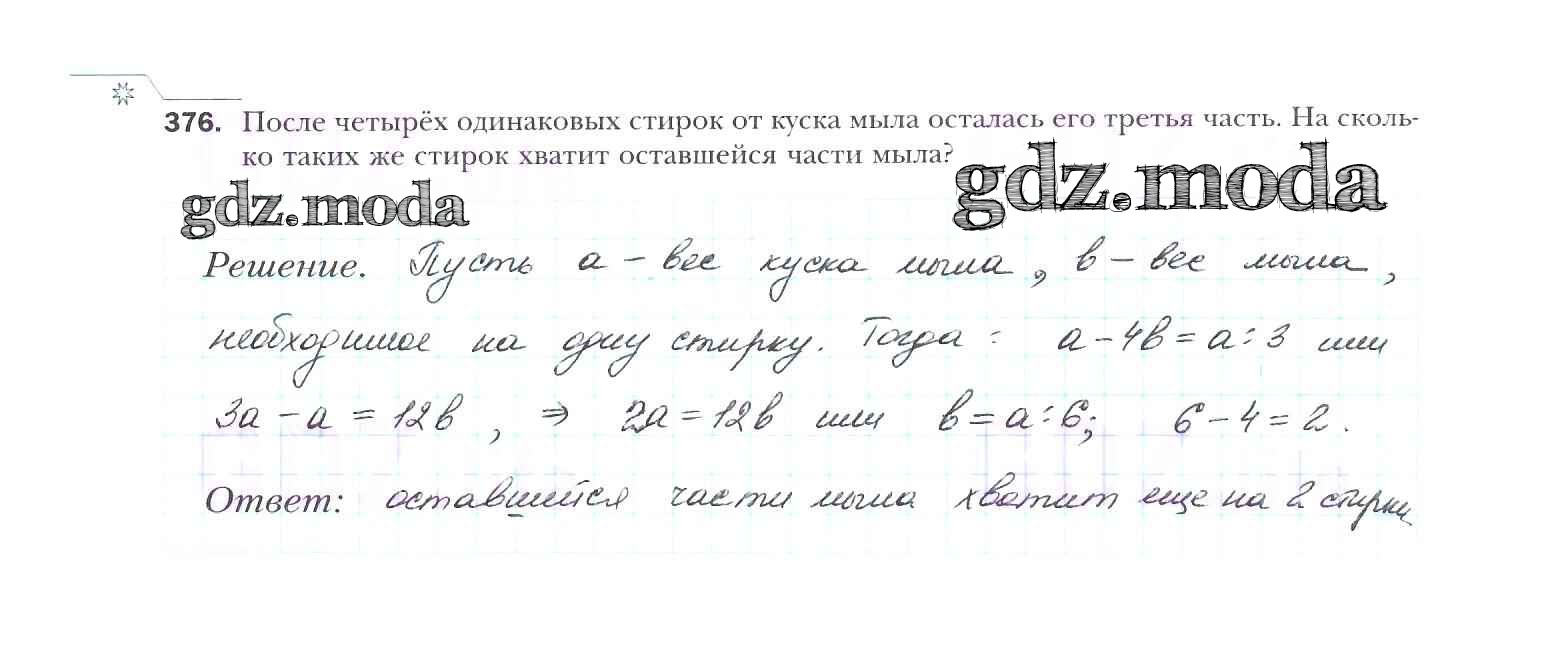 376. После четырёх одинаковых стирок от куска мыла осталась его третья часть. На сколь-
ко таких же стирок хватит оставшейся части мыла?
gdz.moda
gdz.moda
Решение. Пусть a – вес куска мыла, в – вес мыла,
необходимое на одну стирку. Тогда : a – 4в = a : 3 или
3a – a = 12в , ⇒ 2a = 12в или в = a : 6; 6 – 4 = 2 .
Ответ: оставшийся части мыла хватит еще на 2 стирки